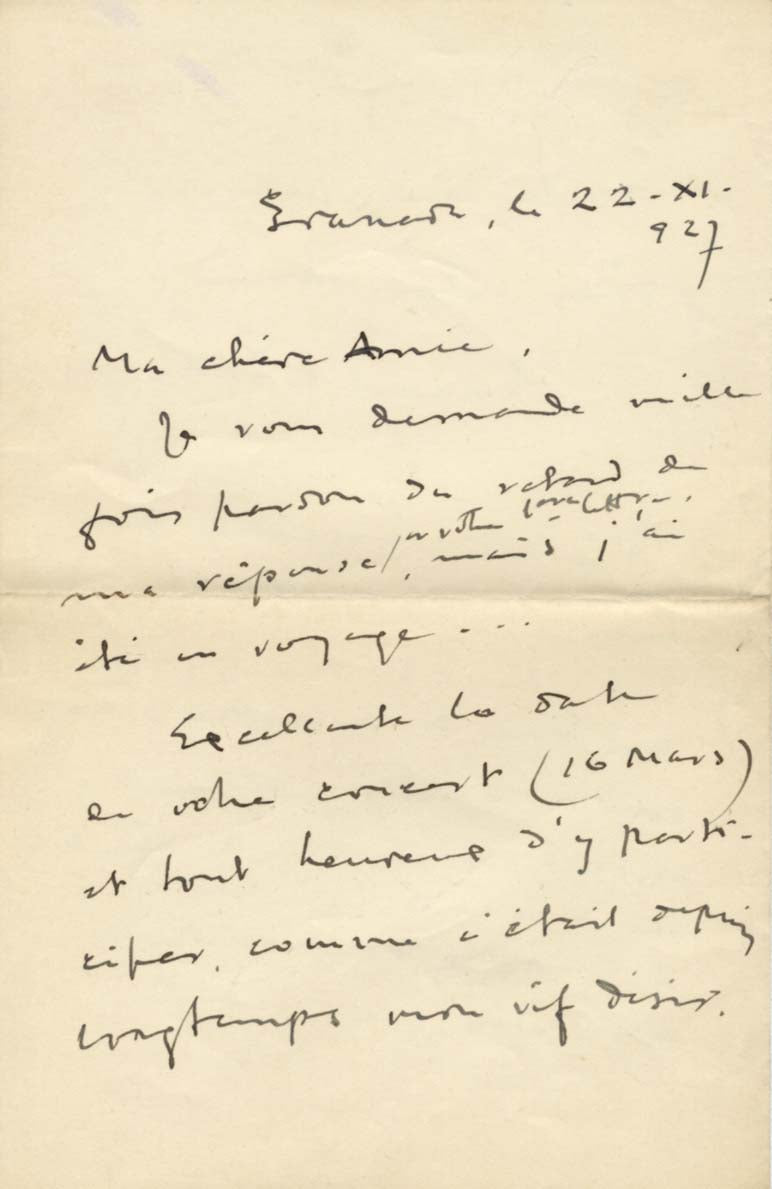 Granada, le 22-XI-
927
Ma chère Amie,
Je vous demande mille
fois pardon du retard de
ma réponse à votre lettre, mais j'ai
été en voyage...
Excellente la date
de votre concert (16 Mars)
et tout heureux d'y parti-
ciper, comme c'était depuis
longtemps mon vif désir.